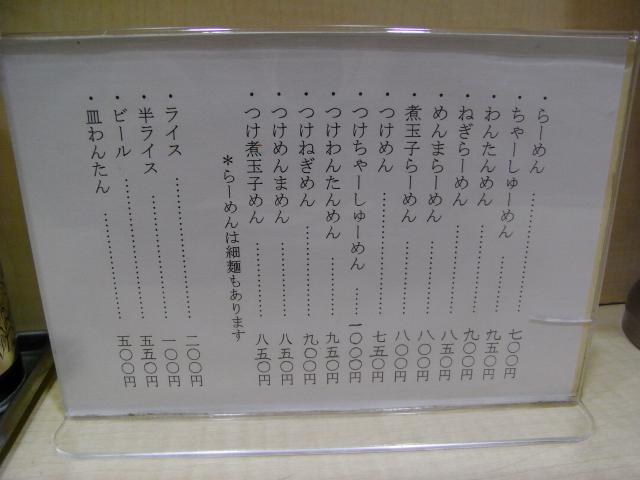 ・らーめん ………………… 七〇〇円
・ちゃーしゅーめん ………… 九五〇円
・わんたんめん ………… 九〇〇円
・ねぎらーめん ………… 八五〇円
・めんまらーめん ……… 八〇〇円
・煮玉子らーめん ……… 八〇〇円
・つけめん ……………… 七五〇円
・つけちゃーしゅーめん …… 一〇〇〇円
・つけわんたんめん ……… 九五〇円
・つけねぎめん ………… 九〇〇円
・つけめんまめん ……… 八五〇円
・つけ煮玉子めん ……… 八五〇円
＊らーめんは細麺もあります
・ライス ………………… 二〇〇円
・半ライス ……………… 一〇〇円
・ビール ………………… 五五〇円
・皿わんたん …………… 五〇〇円